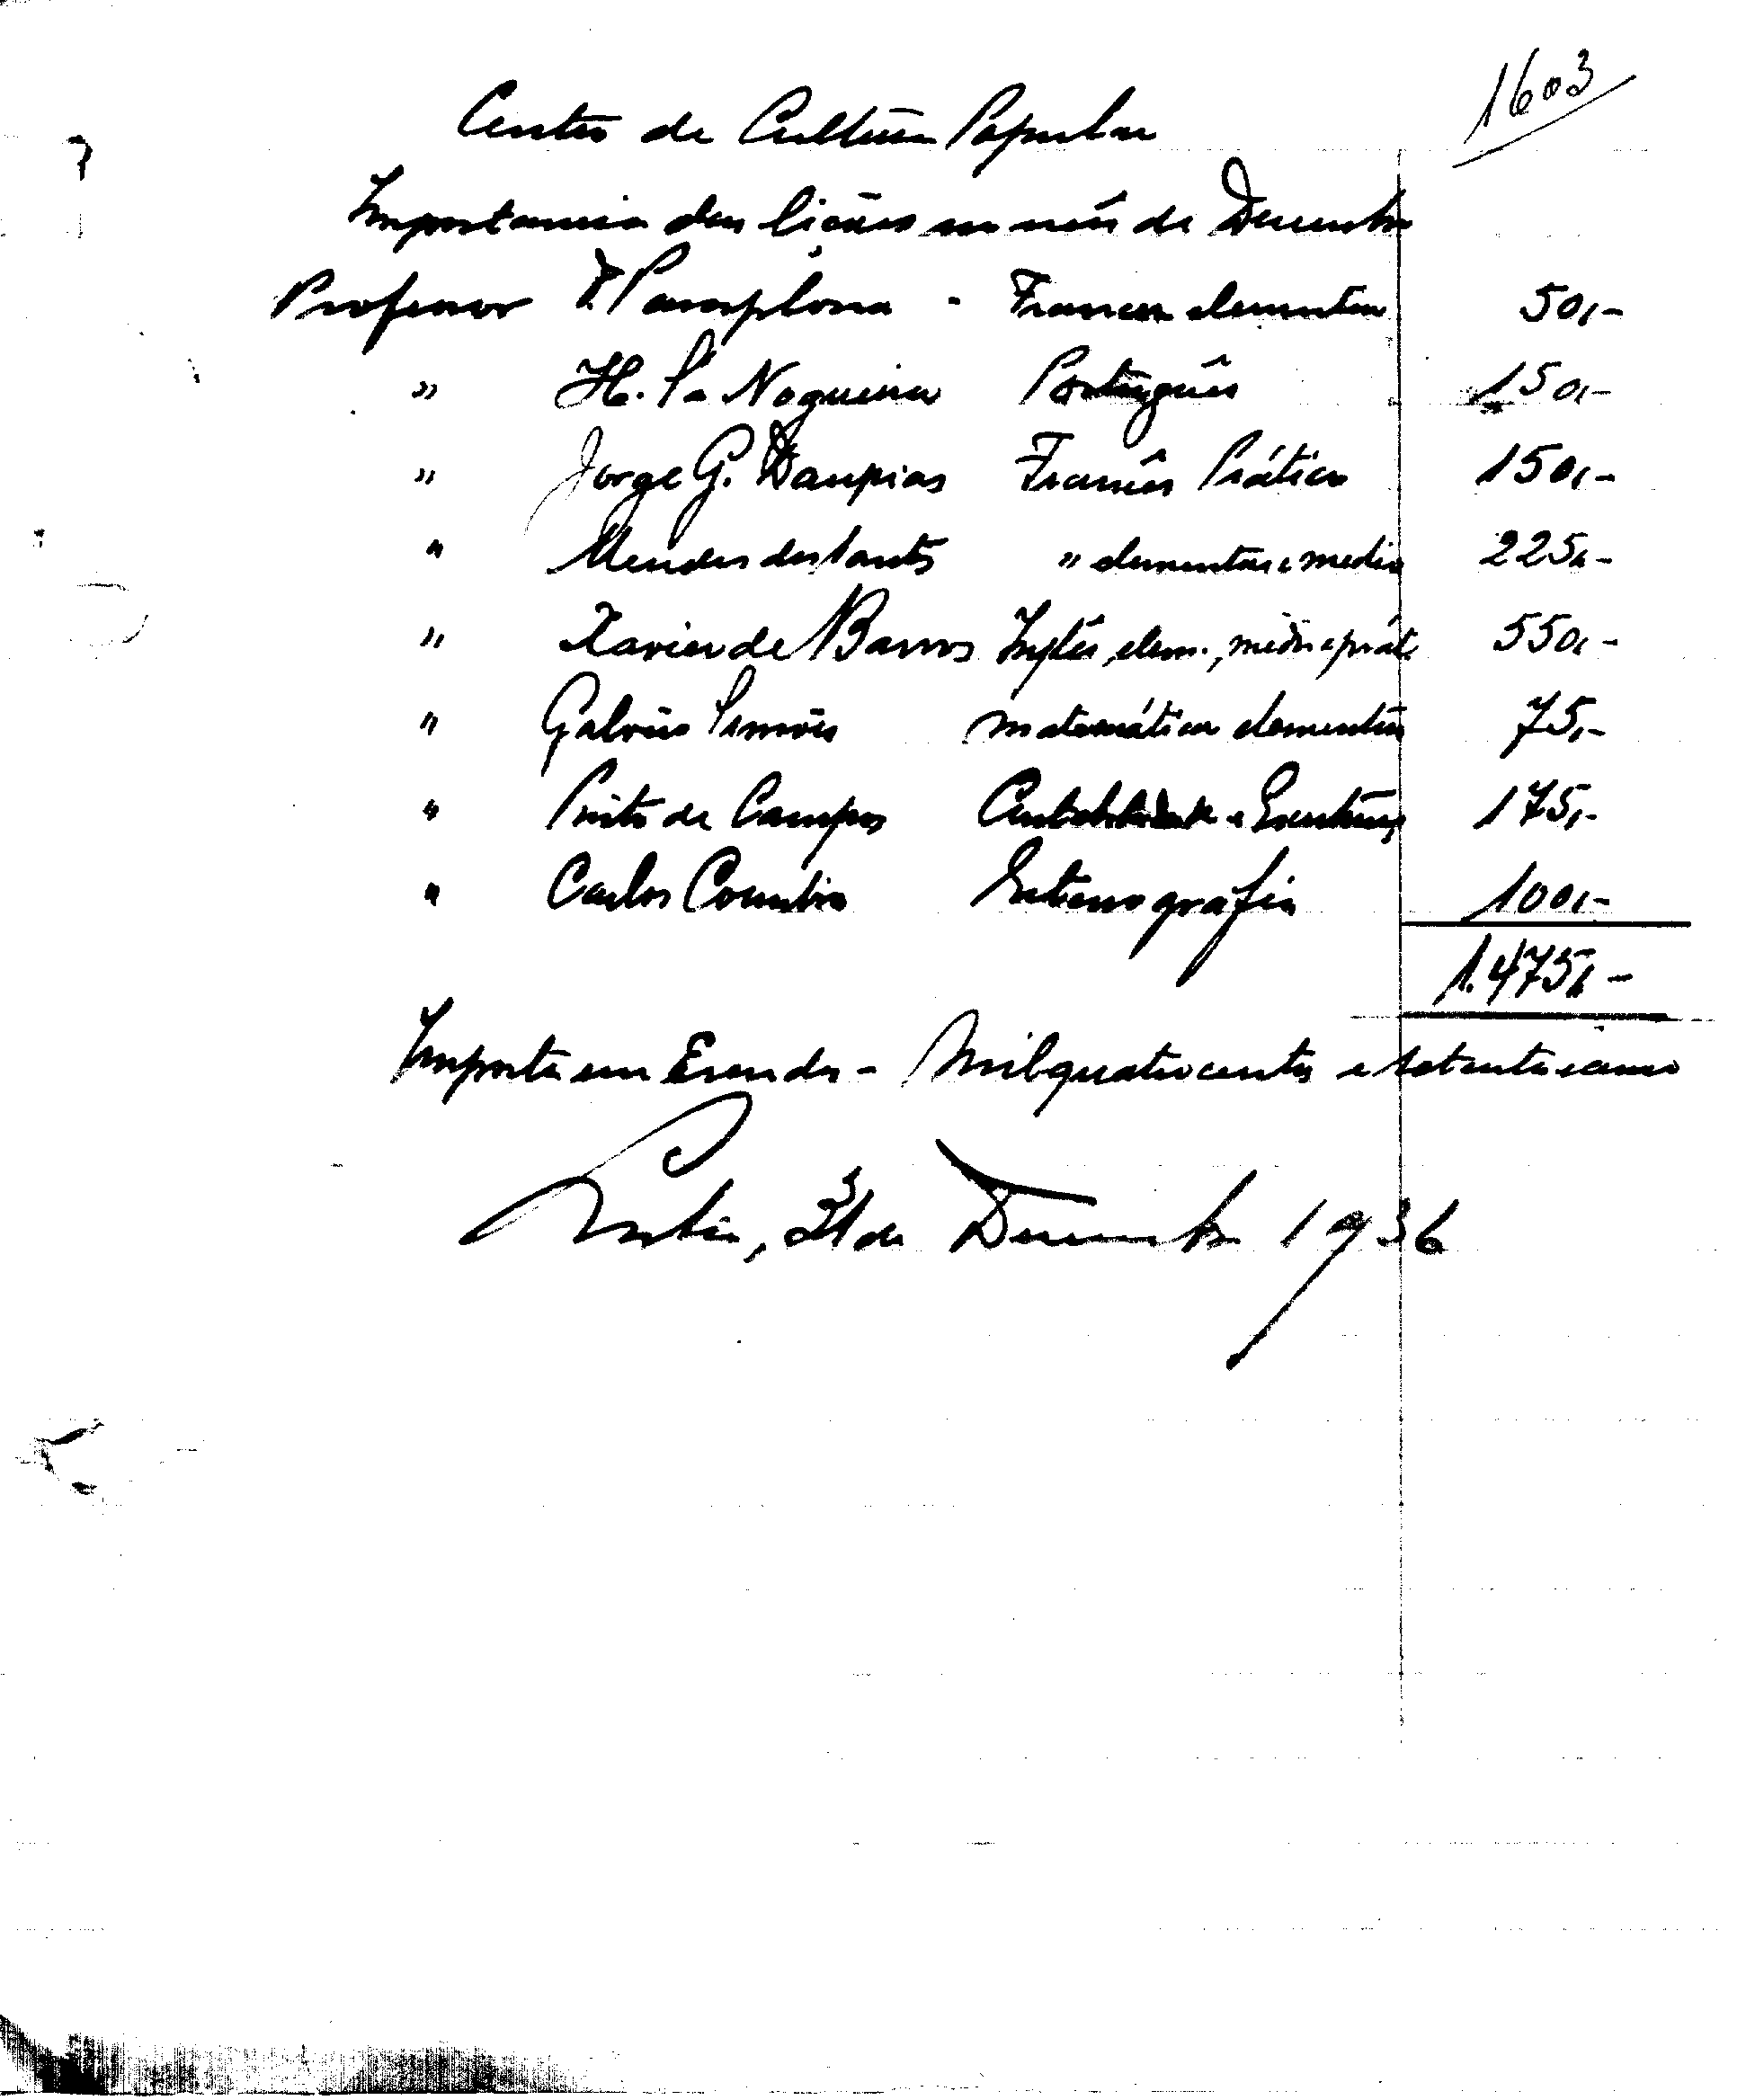 1603
Centro de Cultura Popular
Importancia das lições no mês de Dezembro
Professor F. Pamplona - Frances elementar 50,-
" H. Sá Nogueira Português 150,-
" Jorge G. Daupias Francês Prático 150,-
" Mendes dos Santos " elementar e medio 225,-
" Xavier de Barros Inglês, elem., médio e prát. 550,-
" Galvão Simões matemática elementar 75,-
" Pinto de Campos Contabilidade e Escritura 175,-
" Carlos Coimbra Estenografia 100,-
1.475,-
Importa em Escudos - Mil quatrocentos e setenta e cinco
Lisboa, 31 de Dezembro 1936